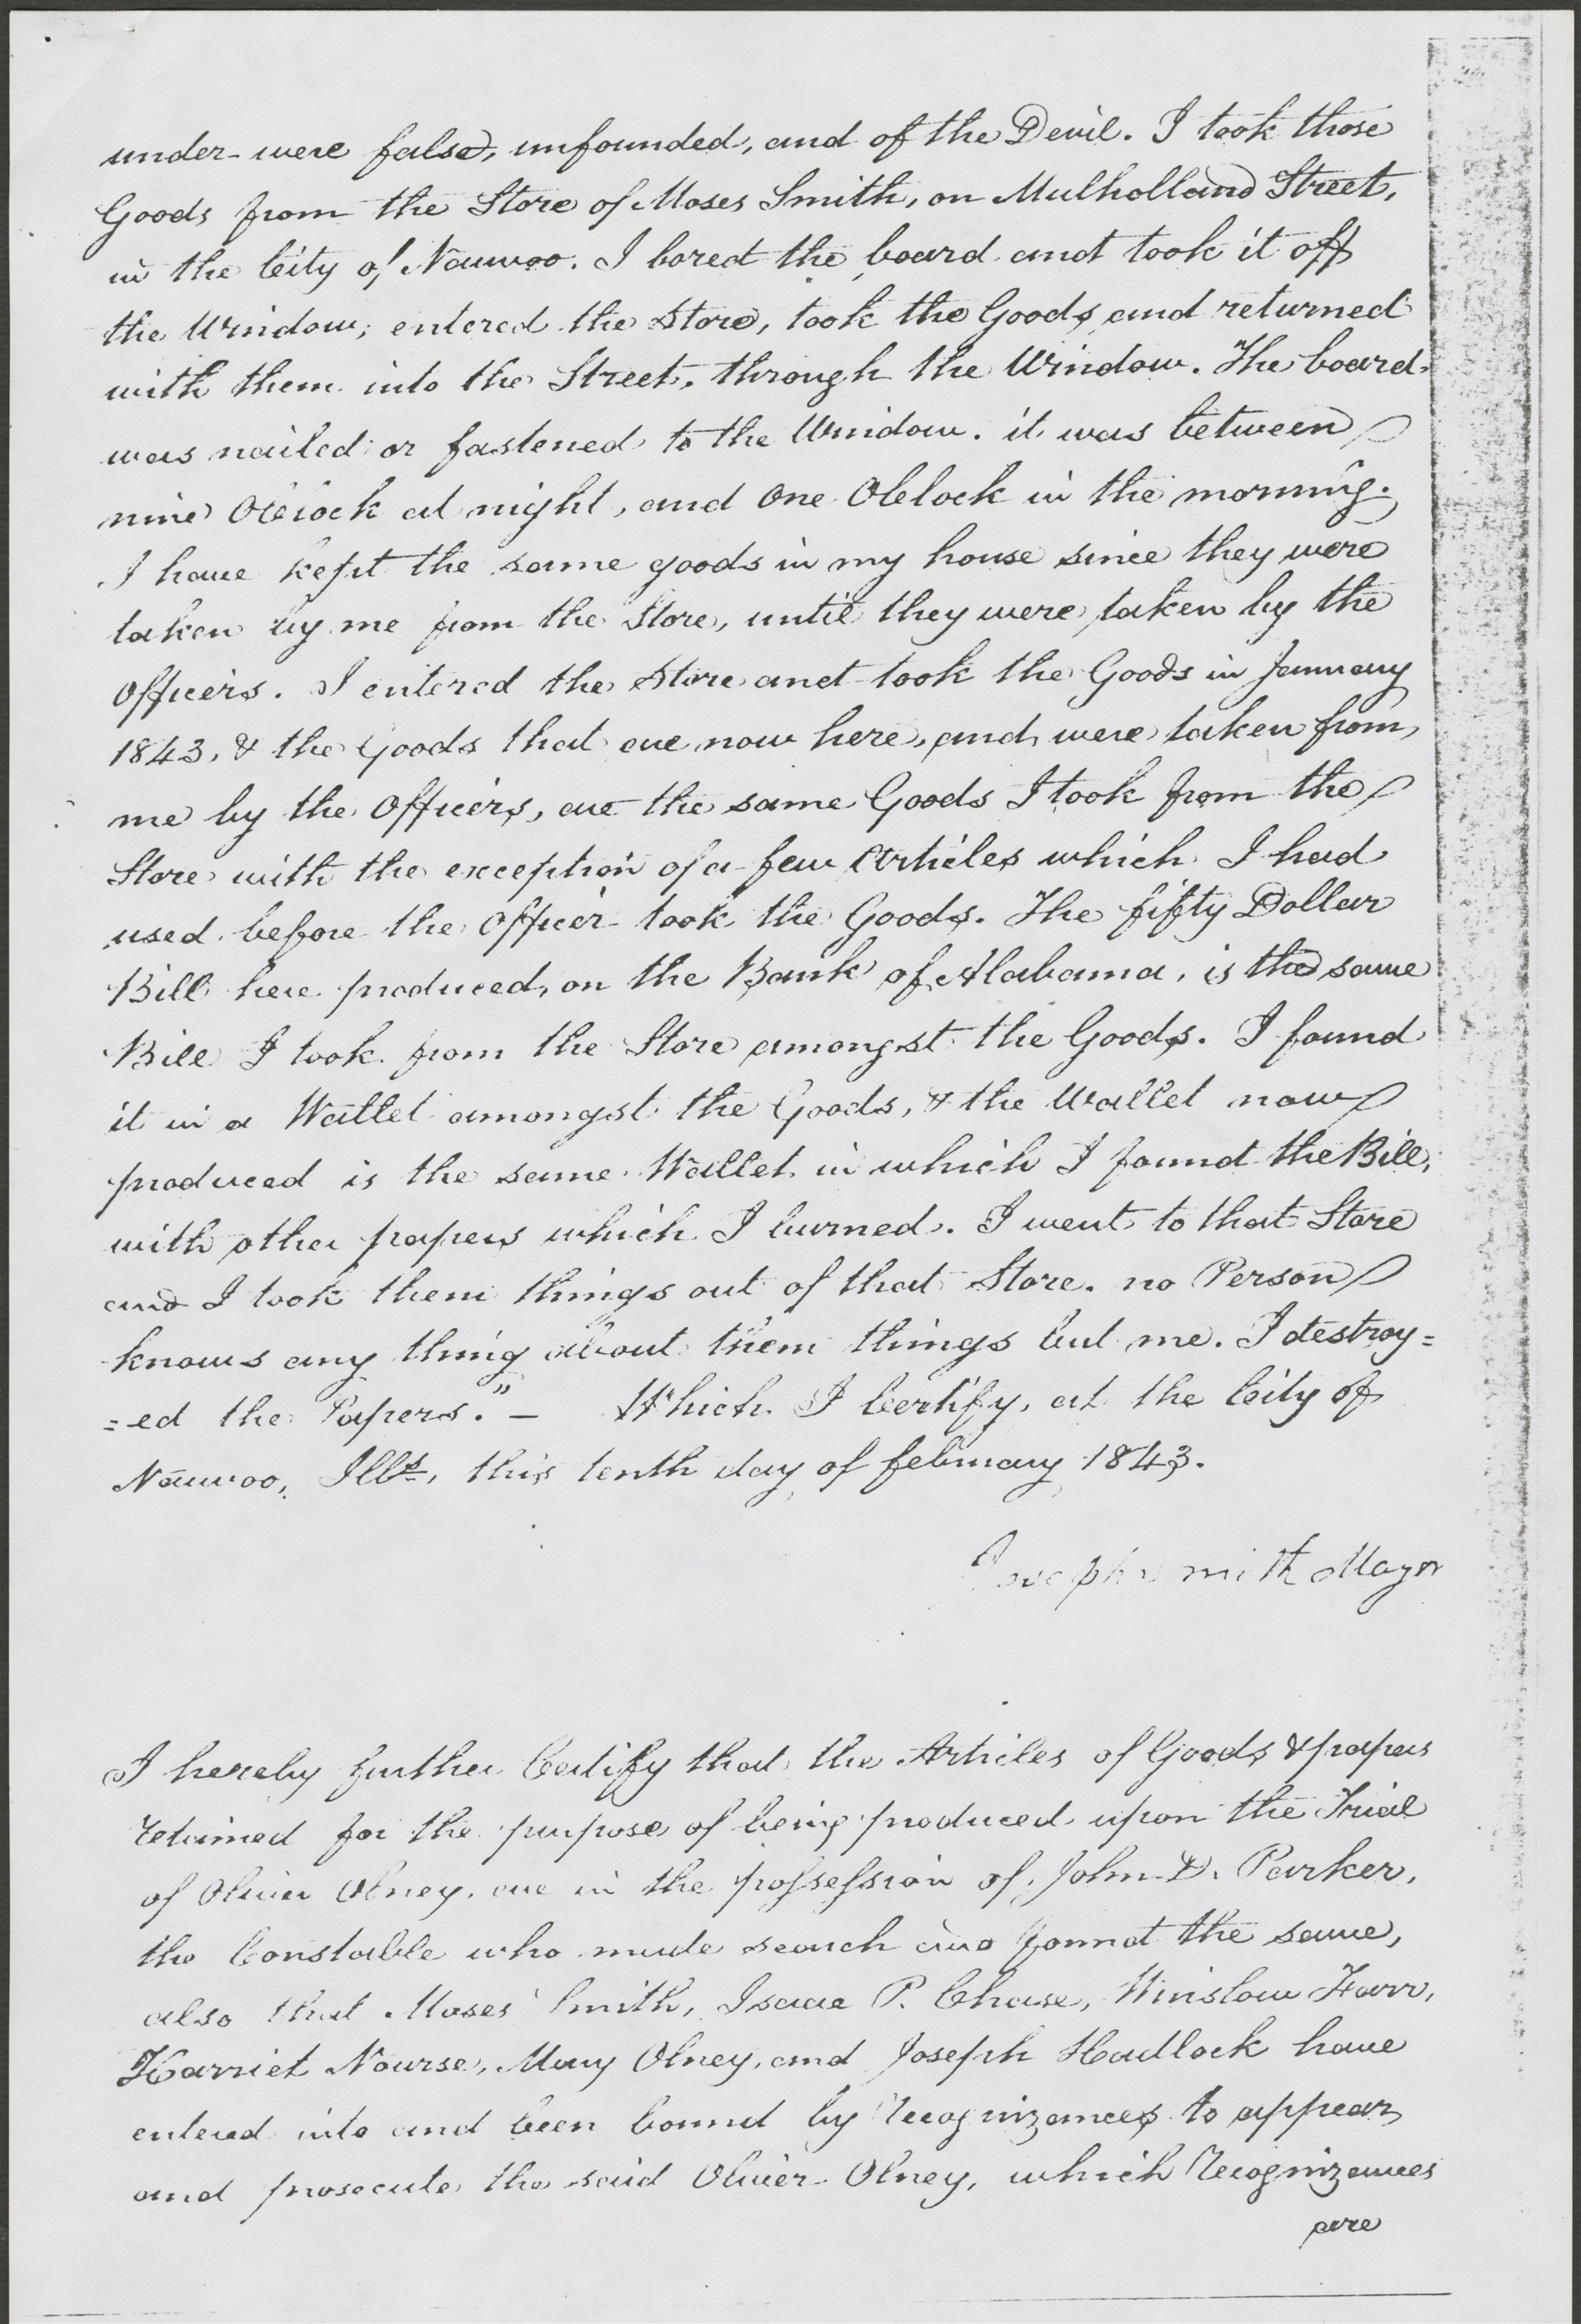 under- were false, unfounded, and of the Devil. I took those
Goods from the Store of Moses Smith, on Mulholland Street,
in the City of Nauvoo. I bored the board and took it off
the Window; entered the Store, took the Goods and returned
with them into the Street, through the Window. The board
was nailed or fastened to the Window. it was between
nine OClock at night, and One OClock in the morning.
I have kept the same goods in my house since they were
taken by me from the Store, until they were taken by the
Officers. I entered the Store and took the Goods in January
1843, & the Goods that are now here, and were taken from
me by the Officers, are the same Goods I took from the
Store with the exception of a few Articles which I had
used before the Officer took the Goods. The fifty Dollar
Bill here produced, on the Bank of Alabama, is the same
Bill I took from the Store amongst the Goods. I found
it in a Wallet amongst the Goods, & the Wallet now
produced is the same Wallet in which I found the Bill,
with other papers which I burned. I went to that Store
and I took them things out of that Store. no Person
knows any thing about them things but me. I destroy=
=ed the Papers." — Which I Certify, at the City of
Nauvoo, Ills, this tenth day of february 1843.
Joseph Smith Mayor
I hereby further Certify that the Articles of Goods & papers
retained for the purpose of being produced upon the Trial
of Oliver Olney, are in the possession of John D. Parker,
the Constable who made search and found the same,
also that Moses Smith, Isaac P. Chase, Winslow Farr,
Harriet Nourse, Mary Olney, and Joseph Hadlock have
entered into and been bound by Recognizances to appear
and prosecute the said Oliver Olney, which Recognizances
are